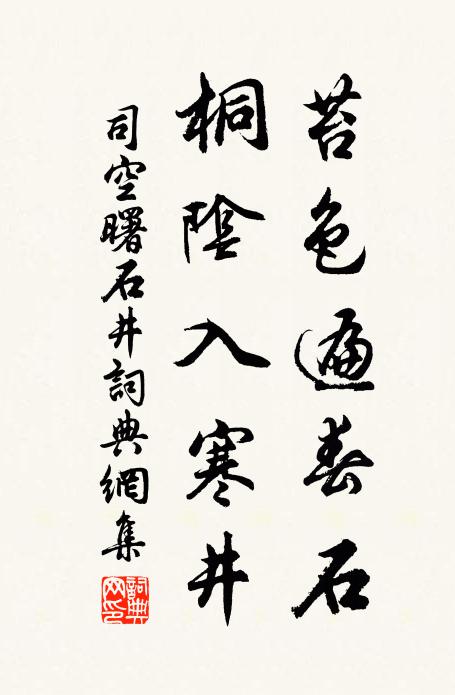 苔色遍春石
桐陰入寒井
司空曙石井詞典網集
詞典網印